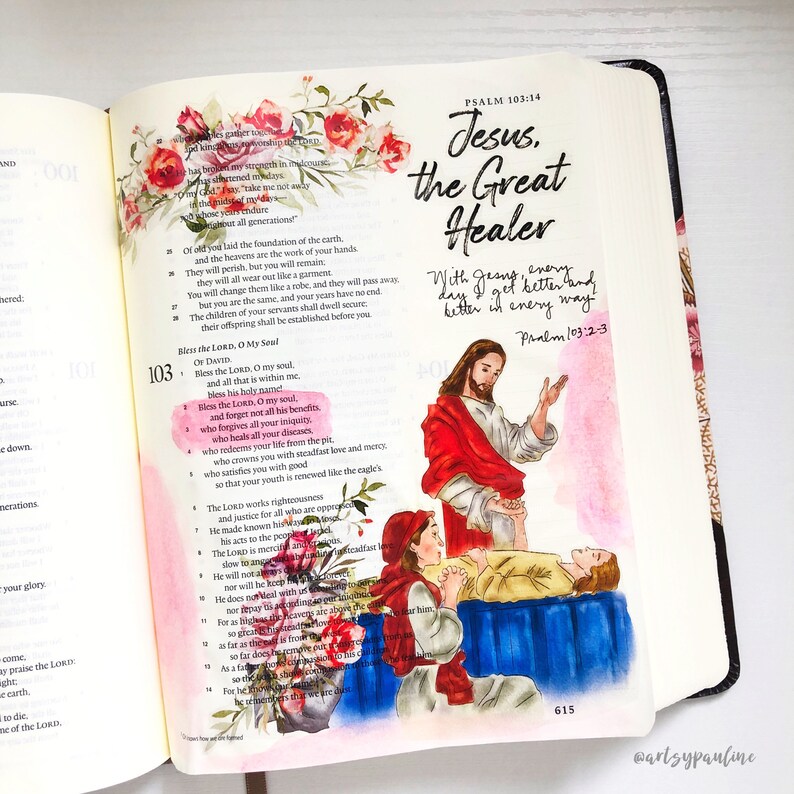 AND
hered;
rse.
e down.
enerations.
r your glory.
come,
ay praise the LORD:
ight;
e earth,
d to die,
me of the LORD.
22 when peoples gather together,
and kingdoms, to worship the LORD.
He has broken my strength in midcourse;
he has shortened my days.
24 "O my God," I say, "take me not away
in the midst of my days—
you whose years endure
throughout all generations!"
25 Of old you laid the foundation of the earth,
and the heavens are the work of your hands.
26 They will perish, but you will remain;
they will all wear out like a garment.
You will change them like a robe, and they will pass away,
27 but you are the same, and your years have no end.
28 The children of your servants shall dwell secure;
their offspring shall be established before you.
Bless the LORD, O My Soul
103 OF DAVID.
1 Bless the LORD, O my soul,
and all that is within me,
bless his holy name!
2 Bless the LORD, O my soul,
and forget not all his benefits,
3 who forgives all your iniquity,
who heals all your diseases,
4 who redeems your life from the pit,
who crowns you with steadfast love and mercy,
5 who satisfies you with good
so that your youth is renewed like the eagle's.
6 The LORD works righteousness
and justice for all who are oppressed.
7 He made known his ways to Moses,
his acts to the people of Israel.
8 The LORD is merciful and gracious,
slow to anger and abounding in steadfast love.
9 He will not always chide,
nor will he keep his anger forever.
10 He does not deal with us according to our sins,
nor repay us according to our iniquities.
11 For as high as the heavens are above the earth,
so great is his steadfast love toward those who fear him;
12 as far as the east is from the west,
so far does he remove our transgressions from us.
13 As a father shows compassion to his children,
so the LORD shows compassion to those who fear him.
14 For he knows our frame;
he remembers that we are dust.
knows how we are formed
PSALM 103:14
Jesus,
the Great
Healer
With Jesus, every
day I get better and
better in every way
Psalm 103:2-3
615
@artsypauline